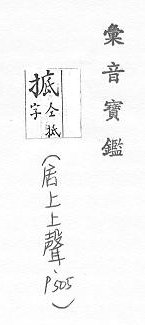 彙音寶鑑
掋 仝抵字
(居上上聲、P505)